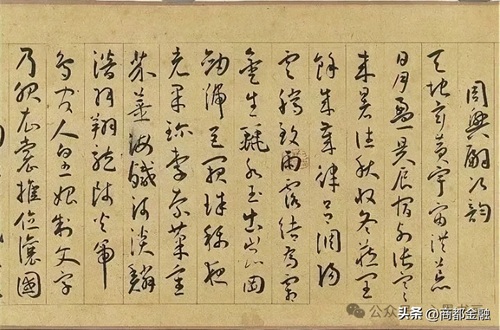 周興嗣次韻
天地玄黃宇宙洪荒
日月盈昃辰宿列張寒
來暑往秋收冬藏閏
餘成歲律呂調陽
雲騰致雨露結為霜
金生麗水玉出崑岡
劍號巨闕珠稱夜
光果珍李柰菜重
芥薑海鹹河淡鱗
潛羽翔龍師火帝
鳥官人皇始制文字
乃服衣裳推位讓國
公众号
头条 @商都金融